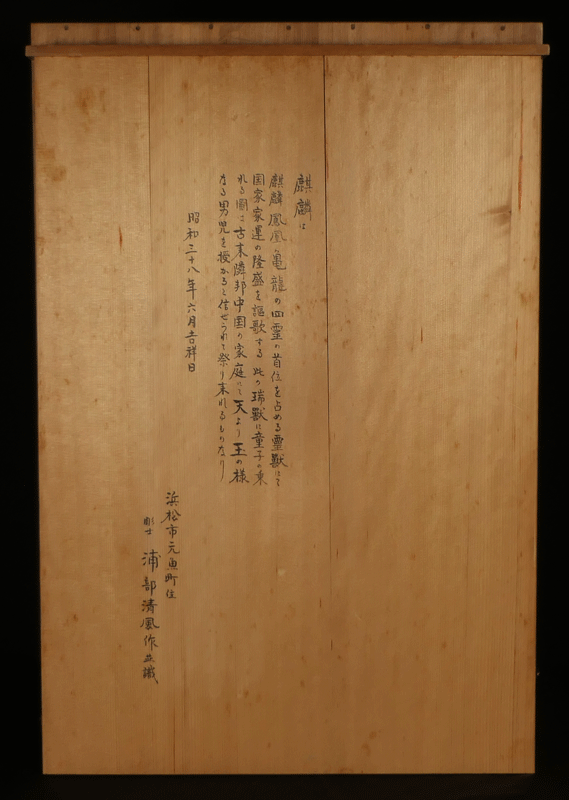 麒麟は
麒麟鳳凰亀龍の四霊の首位を占める霊獣にて
国家家運の隆盛を謳歌する此の瑞獣に童子の乗
れる図は古来隣邦中国の家庭にて天より玉の様
なる男児を授かると信ぜられて祭り来れるものなり
昭和三十八年六月吉祥日
浜松市元魚町住
彫士 浦部清風作並識